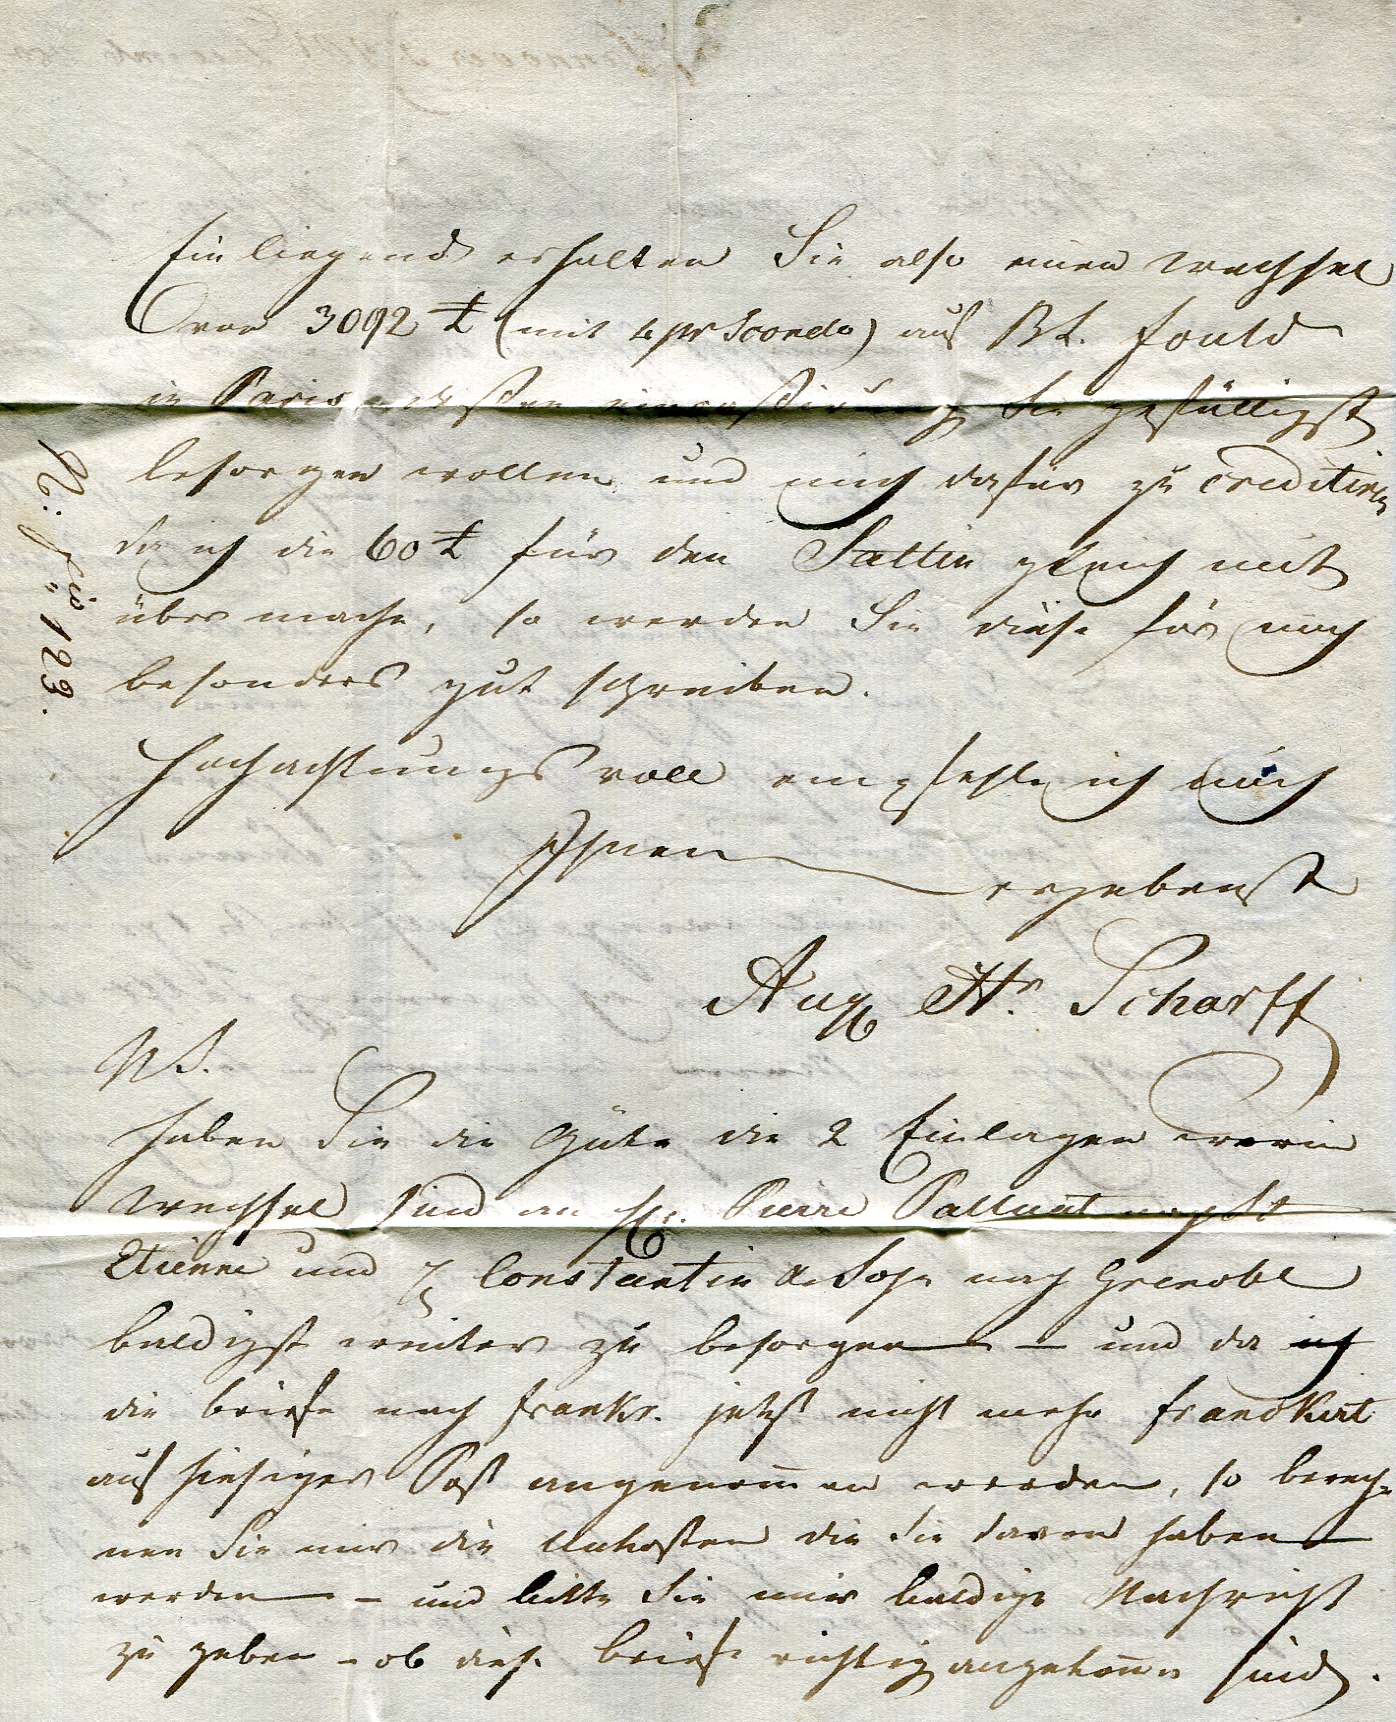 Einliegend erhalten Sie also einen Wechsel
von 3092 ₶ (mit 4 pr Scondo) auf B L. Fould
in Paris, dessen eincassirung Sie gefälligst
besorgen wollen und mich dafür zu creditiren
da ich die 60 ₶ für den Sattin gleich mit
über mache, so werden Sie diese für mich
besonders gut schreiben.
Hochachtungsvoll empfehle ich mich
Ihnen ergebenst
Aug Hr. Scharff
NS.
Haben Sie die Güte die 2 Einlagen worin
Wechsel sind an H. Pierre
Etienne und Constantin & Sohn nach Grenobl
baldigst weiter zu besorgen — und da
die briefe nach Frankr. jetzt nicht mehr franckirt
auf hiesiger Post angenommen werden, so berech-
nen Sie mir die Unkosten die Sie davon haben
werden — und bitte Sie mir baldige Nachricht
zu geben - ob diese briefe richtig angekommen sind.
123.